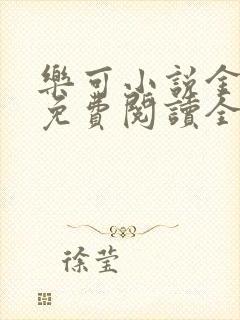 樂可小說全
免費閱讀全
徐莹